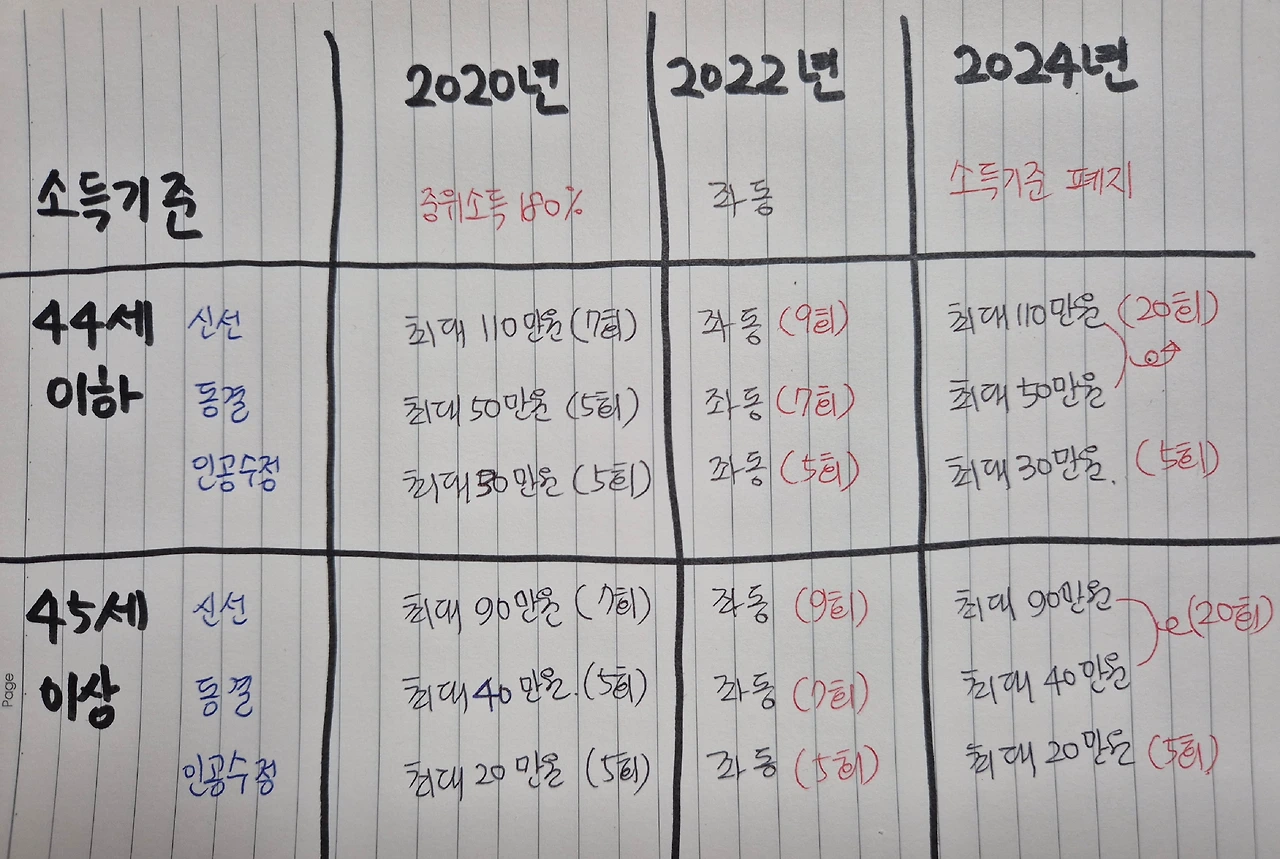 2020년 2022년 2024년
소득기준 중위소득 180% 좌동 소득기준 폐지
44세 신선 최대 110만원 (7회) 좌동 (9회) 최대 110만원 (20회)
이하 동결 최대 50만원 (5회) 좌동 (7회) 최대 50만원
인공수정 최대 30만원 (5회) 좌동 (5회) 최대 30만원. (5회)
45세 신선 최대 90만원 (7회) 좌동 (9회) 최대 90만원 (20회)
이상 동결 최대 40만원. (5회) 좌동 (7회) 최대 40만원
인공수정 최대 20만원 (5회) 좌동 (5회) 최대 20만원 (5회)
Page